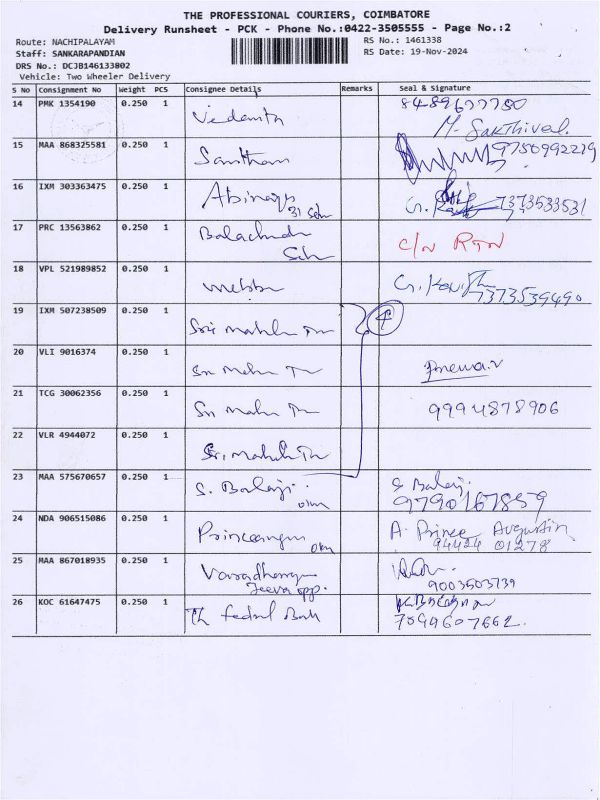 THE PROFESSIONAL COURIERS, COIMBATORE
Delivery Runsheet - PCK - Phone No.:0422-3505555 - Page No.:2
Route: NACHIPALAYAM
RS No.: 1461338
Staff: SANKARAPANDIAN
RS Date: 19-Nov-2024
DRS No.: DCJB146133802
Vehicle: Two Wheeler Delivery
S No Consignment No Weight PCS Consignee Details Remarks Seal & Signature
14 PMK 1354190 0.250 1 Vedanta 8489677780
M. Sakthivel
15 MAA 868325581 0.250 1 Santham 9750992219
16 IXM 303363475 0.250 1 Abinaya 7373533531
17 PRC 13563862 0.250 1 C/N RTN
18 VPL 521989852 0.250 1 G. 7373539490
19 IXM 507238509 0.250 1 Sri 4
20 VLI 9016374 0.250 1 Sri
21 TCG 30062356 0.250 1 Sri 9994878906
22 VLR 4944072 0.250 1 Sri
23 MAA 575670657 0.250 1 S. Balaji S Balaji
9790167859
24 NDA 906515086 0.250 1 A. Prince Augustin
94424 01278
25 MAA 867018935 0.250 1
Jeeva opp. 9003503739
26 KOC 61647475 0.250 1 Th Fedral Bank
7099607662